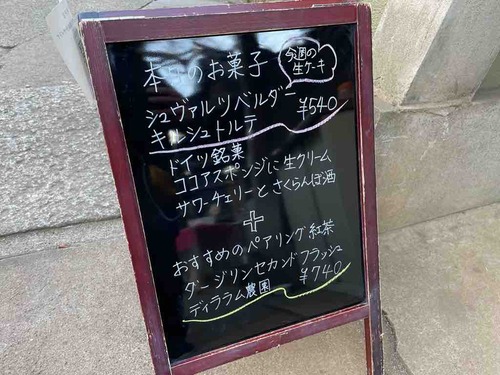 本日のお菓子
今週の
生ケーキ
シュヴァルツベルダー
キルシュトルテ ¥540
ドイツ銘菓
ココアスポンジに生クリーム
サワーチェリーとさくらんぼ酒
+
おすすめのペアリング紅茶
ダージリンセカンドフラッシュ
ディララム農園 ¥740